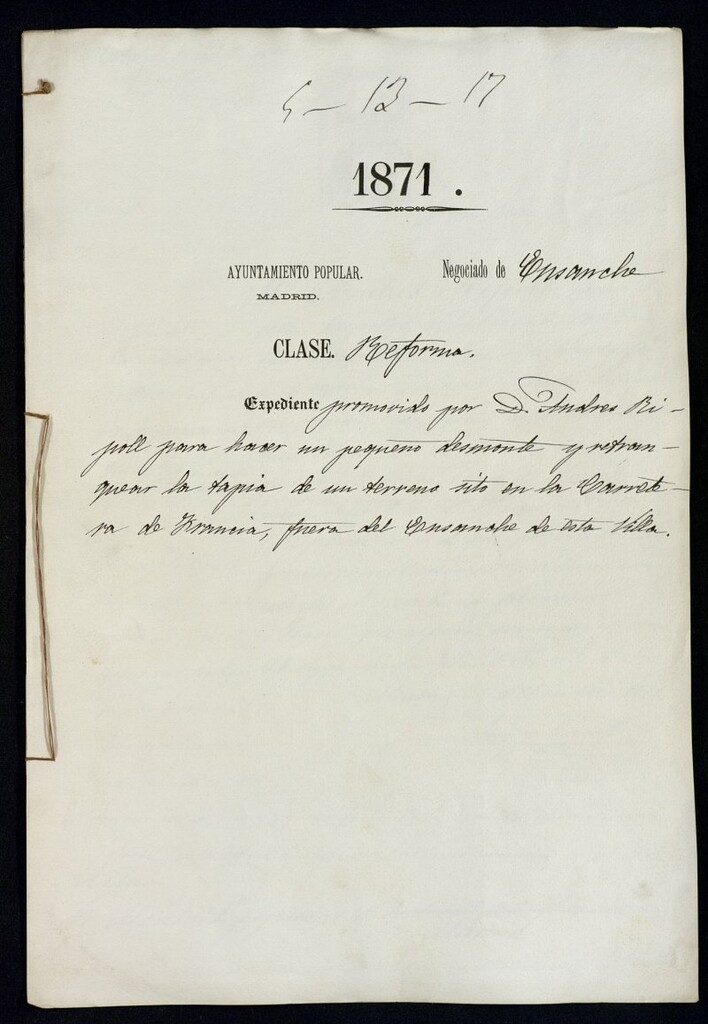 5 - 13 - 17
1871.
AYUNTAMIENTO POPULAR. Negociado de Ensanche
MADRID.
CLASE. Reforma.
Expediente promovido por D. Andres Ri-
poll para hacer un pequeño desmonte y retran-
quear la tapia de un terreno sito en la Carrete-
ra de Francia, fuera del Ensanche de esta Villa.